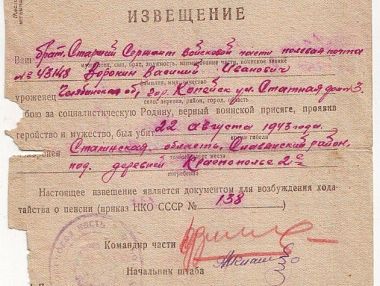 ИЗВЕЩЕНИЕ
Ваш брат. Старший Сержант войсковой части полевая почта
№ 43148 Воронин Василий Иванович
уроженец Челябинской обл, гор. Копейск ул. Статная дом 3.
бою за социалистическую Родину, верный воинской присяге, проявив
геройство и мужество, был убит 22 августа 1943 года.
Сталинская область, Снежнянский район,
под деревней Краснополье 2е
Настоящее извещение является документом для возбуждения хода-
тайства о пенсии (приказ НКО СССР № 138
Командир части
Начальник штаба